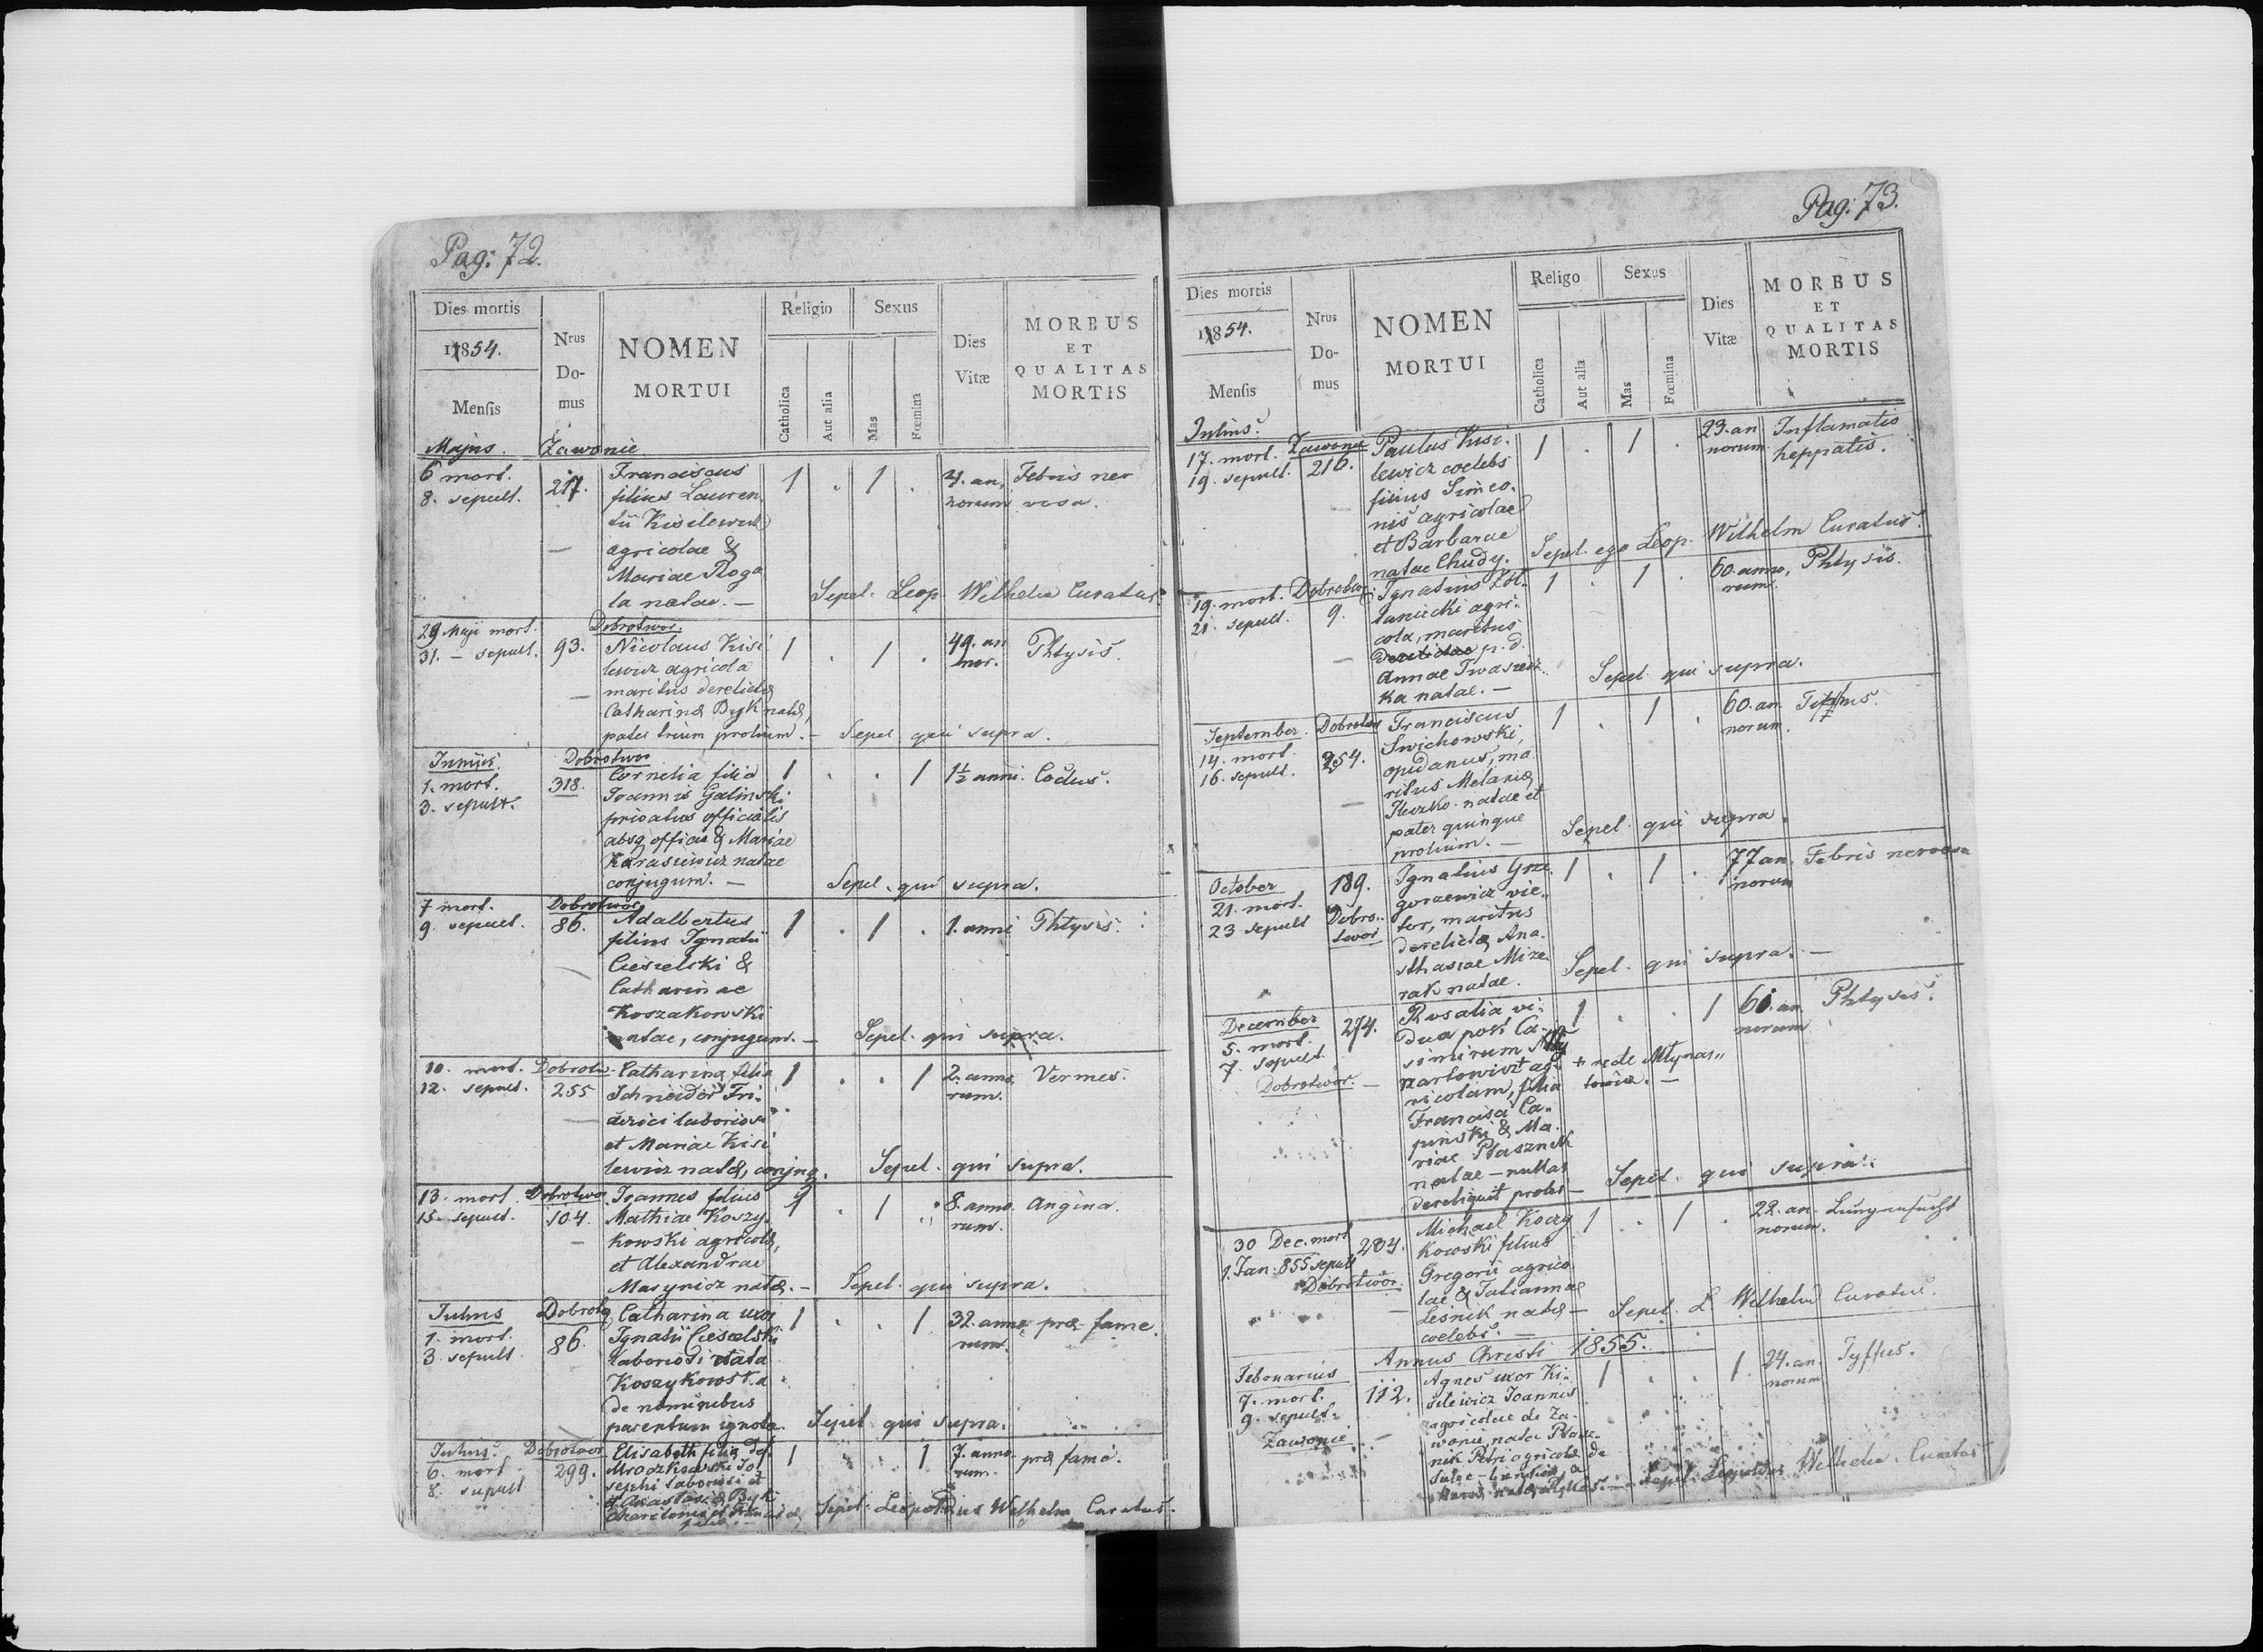 Pag: 72.
Dies mortis
1854.
Mensis
Nrus
Do-
mus
NOMEN
MORTUI
Religio
Catholica
Aut alia
Sexus
Mas
Fœmina
Dies
Vitæ
MORBUS
ET
QUALITAS
MORTIS
Majus. Zawonie
6 mort.
8. sepult.
217.
Franciscus
filius Lauren
tii Kisilewicz
agricolae &
Mariae Roga
la natae. —
1 . 1 .
4. an,
norum
Febris ner
vosa.
Sepel. Leop. Wilhelm Curatus.
29 Maji mort.
31. – sepult.
Dobrotwor.
93.
Nicolaus Kisi
lewicz agricola
maritus derelictæ
Catharinæ Byk natæ,
pater trium prolium. –
1 . 1 .
49. an
nor.
Phtysis.
Sepel qui supra.
Junius.
1. mort.
3. sepult.
Dobrotwor
318.
Cornelia filia
Joannis Galinski
privatus officialis
absq officio & Mariae
Karasiewicz natae
conjugum. —
1 . . 1
1½ anni.
Sepel. qui supra.
7 mort.
9. sepult.
Dobrotwor
86.
Adalbertus
filius Ignatii
Ciesielski &
Catharinae
Koszakowski
natae, conjugum. –
1 . 1 .
1. anni
Phtysis.
Sepel. qui supra.
10. mort.
12. sepult.
Dobrotw.
255
Catharina filia
Schneider Fri-
derici laboriosi
et Mariae Kisi
lewicz natæ, conjug.
1 . . 1
2. anno
rum.
Vermes.
Sepel. qui supra.
13. mort.
15. sepult.
Dobrotwor
104.
Joannes filius
Mathiae Koszy-
kowski agricolæ,
et Alexandrae
natæ. –
1 . 1 .
8. anno
rum.
Angina.
Sepel. qui supra.
Julius
1. mort.
3. sepult
Dobrotw
86.
Catharina uxor
Ignatii Ciesielski
laboriosi nata
Koszykowska
de nominibus
parentum ignota.
1 . . 1
32. anno
rum.
præ fame.
Sepel qui supra.
Julius.
6. mort
8. sepult
Dobrotwor
299.
Elisabeth filia def.
Mroczkowski Jo
sephi laboriosi et
1 . . 1
7. anno
rum.
præ fame.
Sepel. Leopoldus Wilhelm Curatus.
Pag: 73.
Dies mortis
1854.
Mensis
Nrus
Do-
mus
NOMEN
MORTUI
Religo
Catholica
Aut alia
Sexus
Mas
Fœmina
Dies
Vitæ
MORBUS
ET
QUALITAS
MORTIS
Julius.
17. mort.
19. sepult.
Zawonie
216.
Paulus Kisi-
lewicz coelebs
filius Simeo-
nis agricolae
et Barbarae
natae Chudy.
1 . 1 .
23. an
norum
Inflamatis
heppatis.
Sepel. ego Leop. Wilhelm Curatus.
19. mort.
21. sepult.
Dobrotwor
9.
Ignatius Zol-
taniecki agri-
cola, maritus
p. d.
Annae Iwasiecz
ka natae. —
1 . 1 .
60. anno,
rum.
Phtysis.
Sepel qui supra.
September.
14. mort.
16. sepult.
Dobrotwor
254.
Franciscus
Swichowski,
opidanus, ma
ritus Melaniæ
natae et
pater quinque
prolium. —
1 . 1 .
60. an
norum.
Sepel. qui supra.
October
21. mort.
23 sepult
189.
Dobro-
twor
Ignatius Grze
gorzewicz vie-
tor, maritus
derelictæ Ana
sthasiae Mize
rak natae.
1 . 1 .
77 an
norum
Febris nervosa
Sepel. qui supra. —
December
5. mort.
7. sepult.
Dobrotwor. –
274.
Rosalia vi-
dua post Ca-
simirum
ag-
ricolam, filia
Francisci Ca-
pinski & Ma-
riae Ptasznik
natae – nullas
dereliquit proles –
+ recte Młynar-
towicz. —
1 . . 1
60. an
norum
Phtysis.
Sepel. qui supra.
30 Dec. mort
1. Jan. 855 sepult
Dobrotwor.
284.
Michael Koczy
kowski filius
Gregorii agrico
lae & Tatiannae
Lesnik natæ –
coelebs. —
1 . 1 .
22. an
norum.
Lungensucht
Sepel. L. Wilhelm Curatus.
Annus Christi 1855.
Februarius
7. mort.
9. sepult.
Zawonie
112.
Agnes uxor Ki-
silewicz Joannis
agricolae de Za-
wonie nata Ptasz-
nik Petri agricolæ de
1 . . 1
24. an
norum
Tyffus.
Sepel. Leopoldus Wilhelm. Curatus